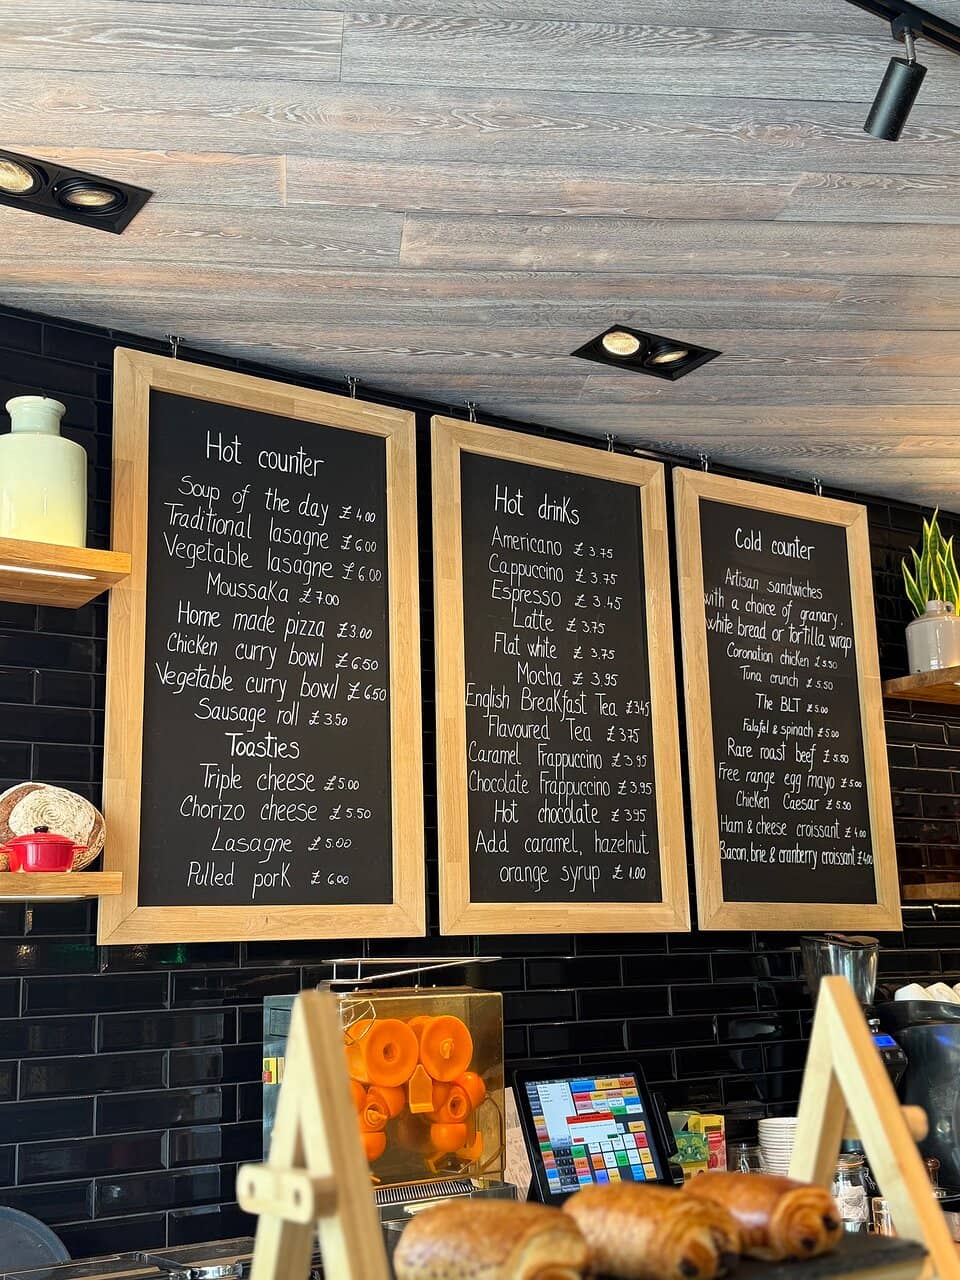 Hot counter
Soup of the day £4.00
Traditional lasagne £6.00
Vegetable lasagne £6.00
Moussaka £7.00
Home made pizza £3.00
Chicken curry bowl £6.50
Vegetable curry bowl £6.50
Sausage roll £3.50
Toasties
Triple cheese £5.00
Chorizo cheese £5.50
Lasagne £5.00
Pulled pork £6.00
Hot drinks
Americano £3.75
Cappuccino £3.75
Espresso £3.45
Latte £3.75
Flat white £3.75
Mocha £3.95
English Breakfast Tea £3.45
Flavoured Tea £3.75
Caramel Frappuccino £3.95
Chocolate Frappuccino £3.95
Hot chocolate £3.95
Add caramel, hazelnut
orange syrup £1.00
Cold counter
Artisan sandwiches
with a choice of granary,
white bread or tortilla wrap
Coronation chicken £5.50
Tuna crunch £5.50
The BLT £5.00
Falafel & spinach £5.00
Rare roast beef £5.50
Free range egg mayo £5.00
Chicken Caesar £5.50
Ham & cheese croissant £4.00
Bacon, brie & cranberry croissant £4.00